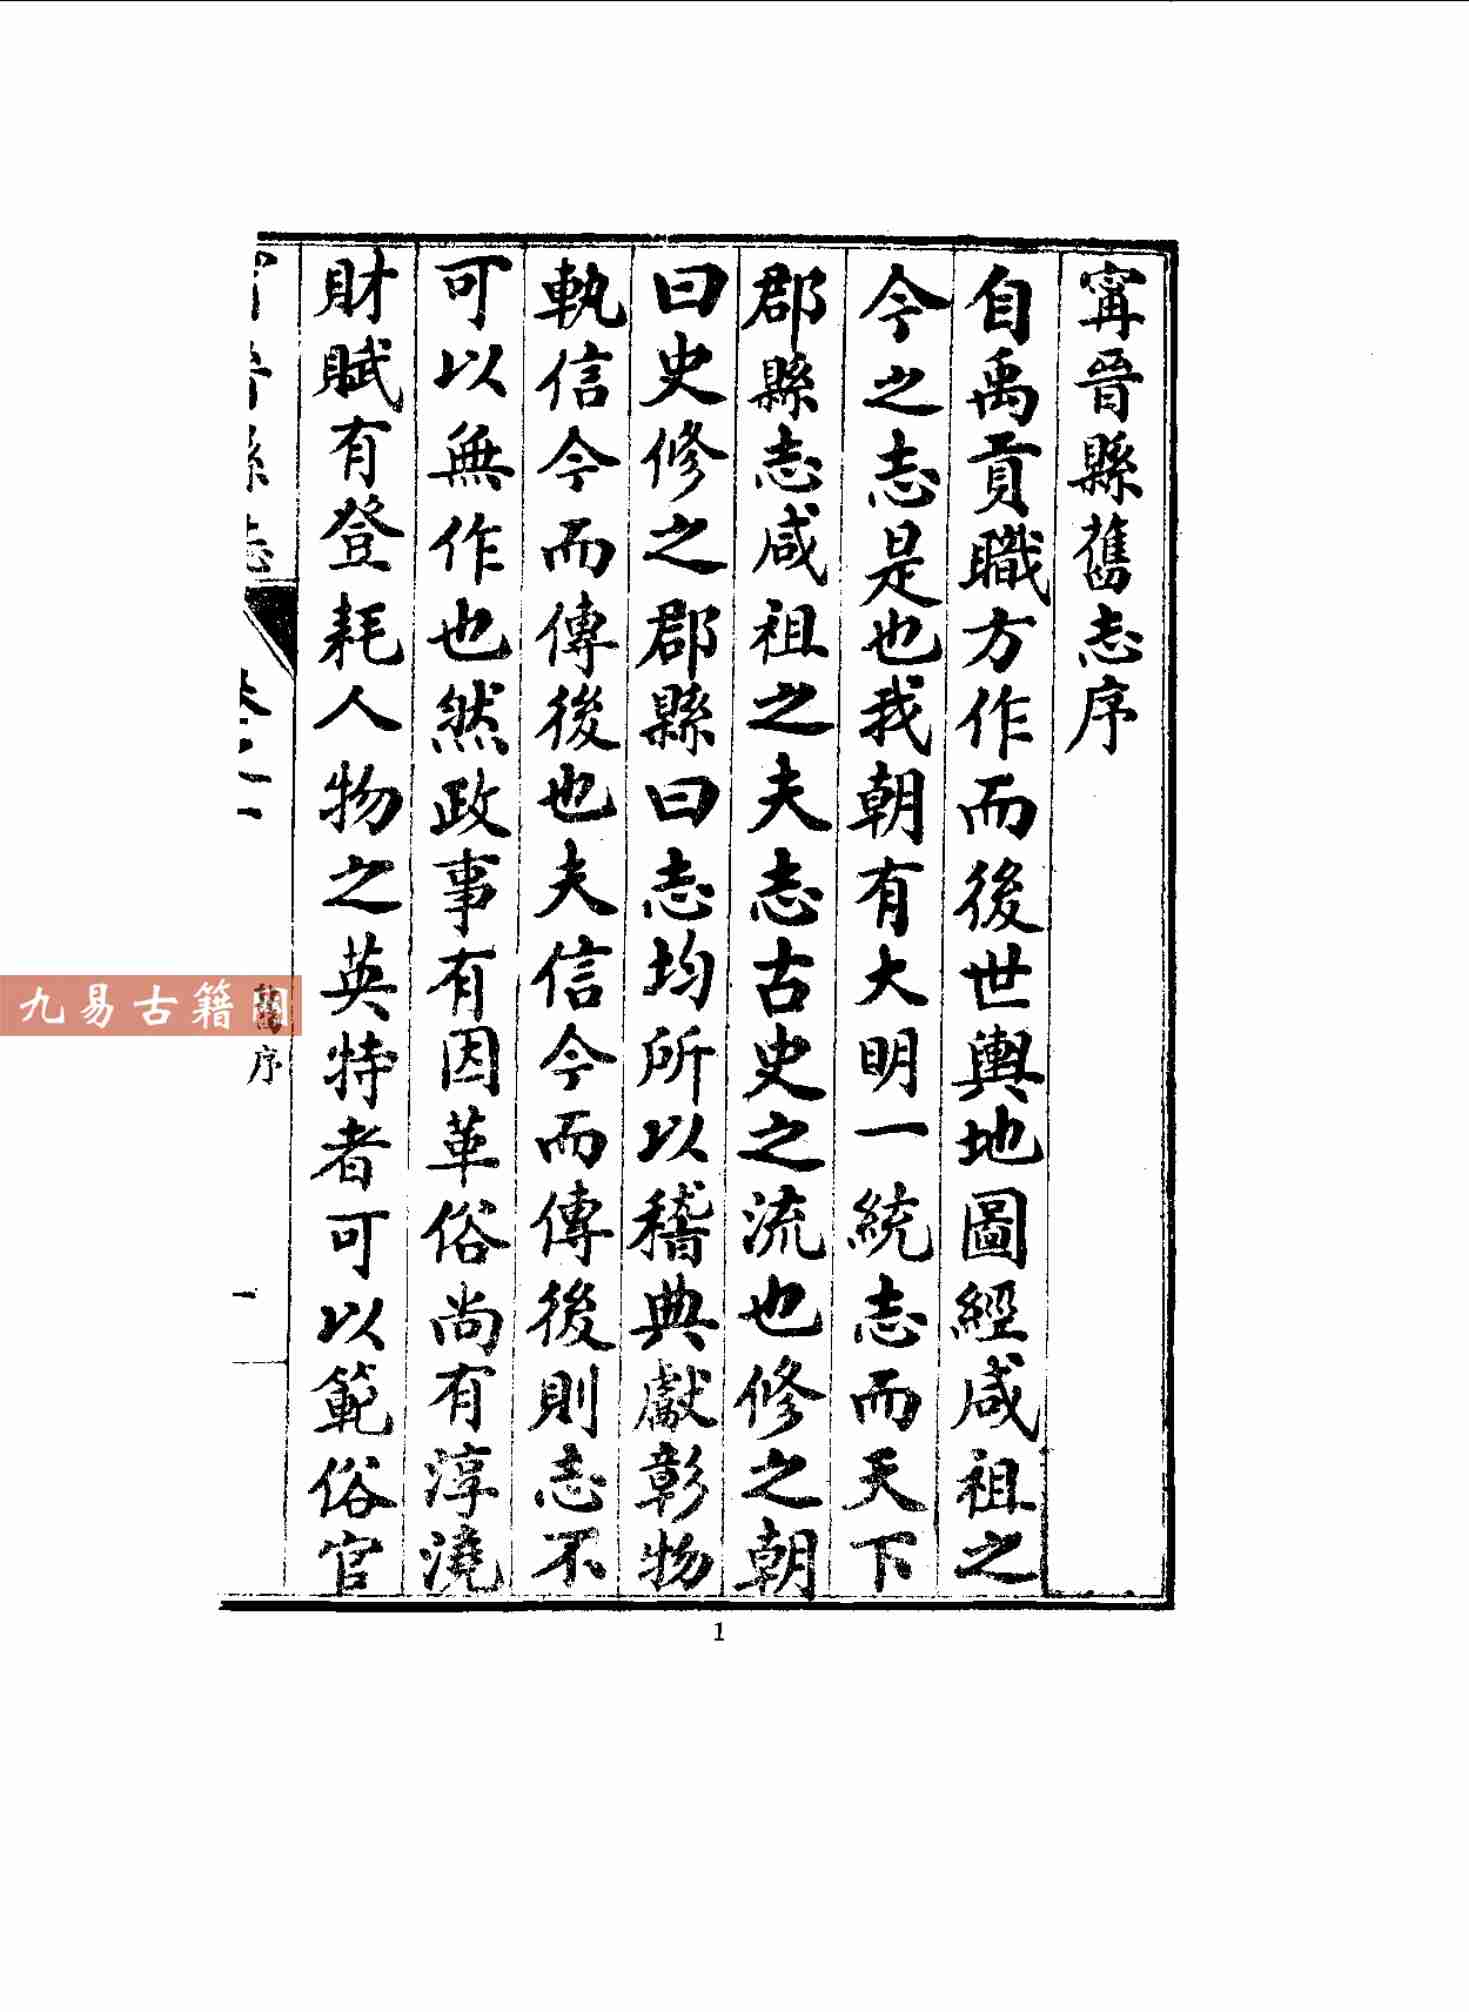 甯晉縣舊志序
自禹貢職方作而後世輿地圖經咸祖之
今之志是也我朝有大明一統志而天下
郡縣志咸祖之夫志古史之流也修之朝
曰史修之郡縣曰志均所以稽典獻彰物
軌信今而傳後也夫信今而傳後則志不
可以無作也然政事有因革俗尚有淳澆
財賦有登耗人物之英特者可以範俗官
序
一
1
九易古籍網